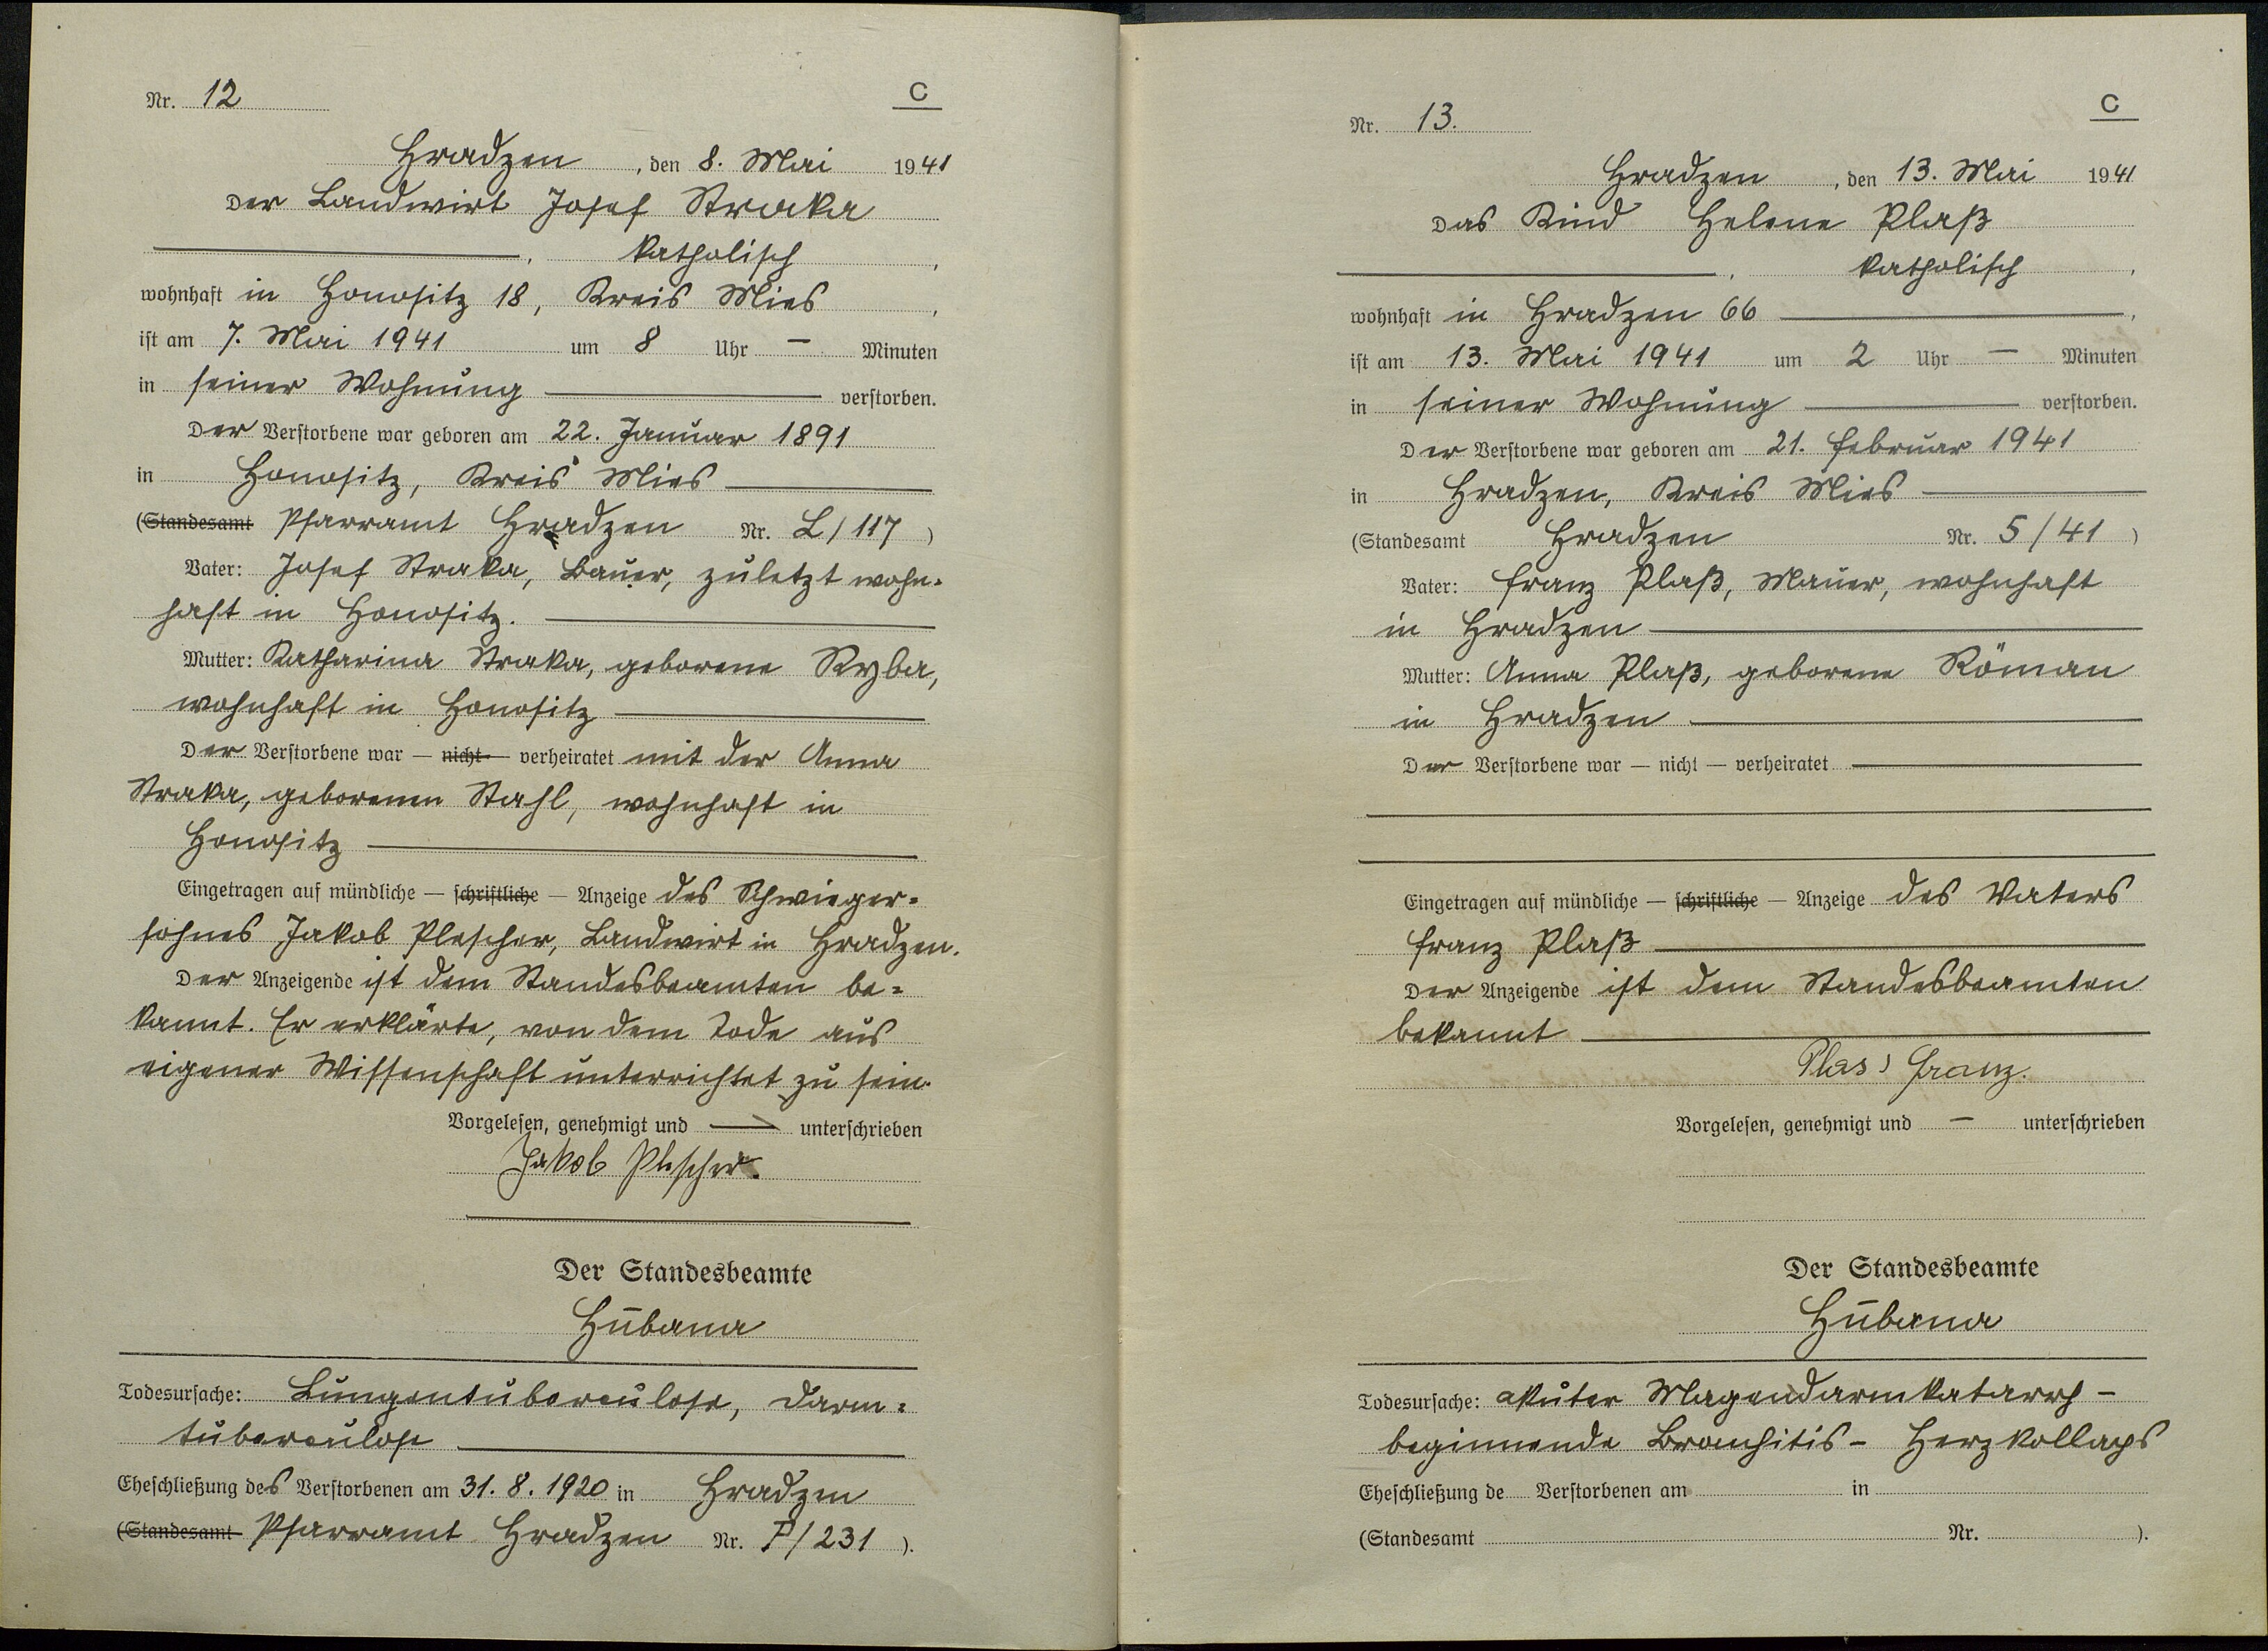 Nr. 12
C
Hradzen, den 8. Mai 1941
Der Landwirt Josef Straka
, katholisch,
wohnhaft in Honositz 18, Kreis Mies,
ist am 7. Mai 1941 um 8 Uhr — Minuten
in seiner Wohnung verstorben.
Der Verstorbene war geboren am 22. Januar 1891
in Honositz, Kreis Mies
(Standesamt Pfarramt Hradzen Nr. L/117)
Vater: Josef Straka, Bauer, zuletzt wohn-
haft in Honositz.
Mutter: Katharina Straka, geborene Ryba,
wohnhaft in Honositz
Der Verstorbene war — nicht — verheiratet mit der Anna
Straka, geborenen Stahl, wohnhaft in
Honositz
Eingetragen auf mündliche — schriftliche — Anzeige des Schwieger-
sohnes Jakob Plescher, Landwirt in Hradzen.
Der Anzeigende ist dem Standesbeamten be-
kannt. Er erklärte, von dem Tode aus
eigener Wissenschaft unterrichtet zu sein.
Vorgelesen, genehmigt und — unterschrieben
Jakob Plescher.
Der Standesbeamte
Hubana
Todesursache: Lungentuberculose, Darm-
tuberculose
Eheschließung des Verstorbenen am 31.8.1920 in Hradzen
(Standesamt Pfarramt Hradzen Nr. F/231).
Nr. 13.
C
Hradzen, den 13. Mai 1941
Das Kind Helene Plaß
, katholisch,
wohnhaft in Hradzen 66,
ist am 13. Mai 1941 um 2 Uhr — Minuten
in seiner Wohnung verstorben.
Der Verstorbene war geboren am 21. Februar 1941
in Hradzen, Kreis Mies
(Standesamt Hradzen Nr. 5/41)
Vater: Franz Plaß, Mauer, wohnhaft
in Hradzen
Mutter: Anna Plaß, geborene Röman
in Hradzen
Der Verstorbene war — nicht — verheiratet
Eingetragen auf mündliche — schriftliche — Anzeige des Vaters
Franz Plaß
Der Anzeigende ist dem Standesbeamten
bekannt
Plass Franz.
Vorgelesen, genehmigt und — unterschrieben
Der Standesbeamte
Hubana
Todesursache: akuter Magendarmkatarrh -
beginnende Bronchitis - Herzkollaps
Eheschließung de Verstorbenen am in
(Standesamt Nr. ).